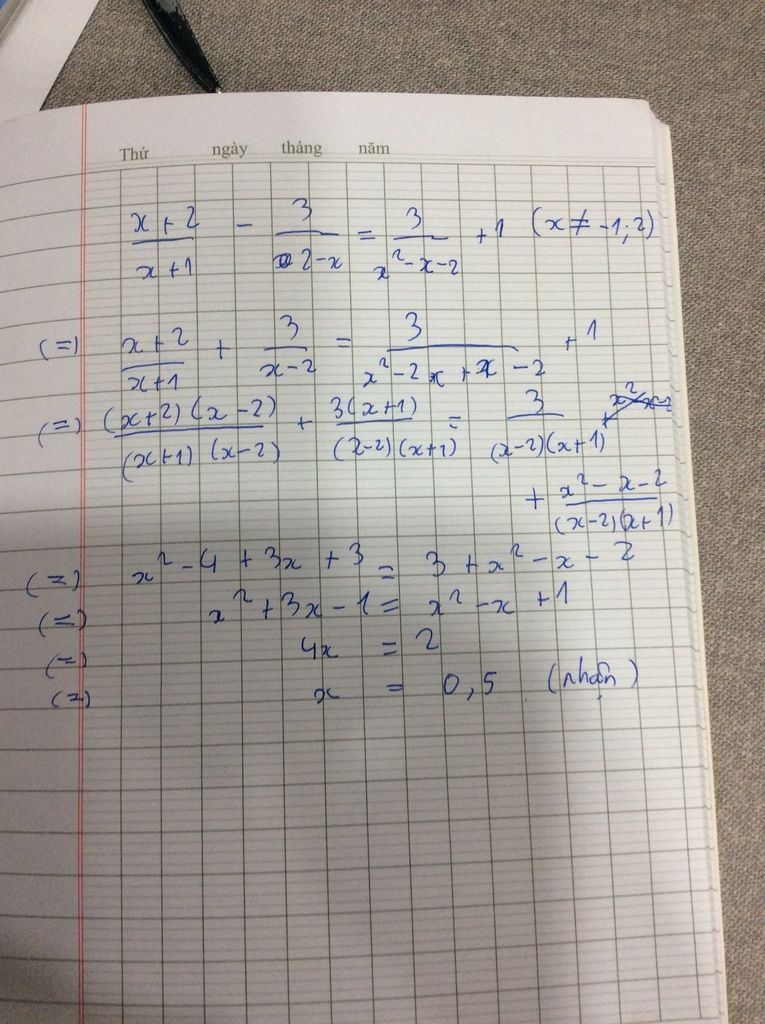 Thứ ngày tháng năm
x+2/x+1 - 3/2-x = 3/x²-x-2 +1 (x ≠ -1;2)
(=) x+2/x+1 + 3/x-2 = 3/x²-2x+x-2 +1
(=) (x+2)(x-2)/(x+1)(x-2) + 3(x+1)/(x-2)(x+1) = 3/(x-2)(x+1)
+ x²-x-2/(x-2)(x+1)
(=) x²-4+3x+3 = 3+x²-x-2
(=) x²+3x-1 = x²-x+1
(=) 4x = 2
(=) x = 0,5 (nhận)